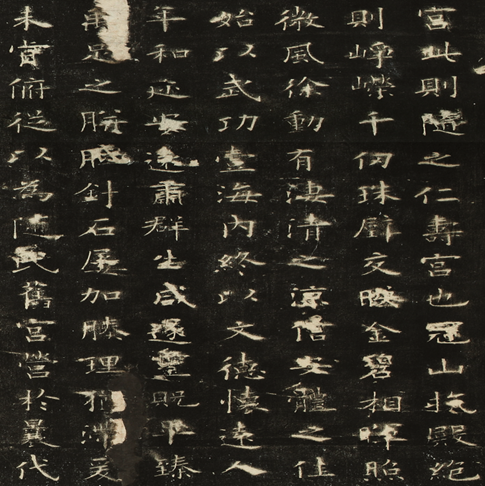 宮此則隨之仁壽宮也冠山抗殿絕
則崢嶸千仞珠璧交暎金碧相暉照
微風徐動有淒清之涼信安體之佳
始以武功壹海內終以文德懷遠人
年和迩安遠肅群生咸遂靈貺畢臻
禹足之胼胝針石屢加腠理猶滯爰
未肯俯從以為隨氏舊宮營於曩代